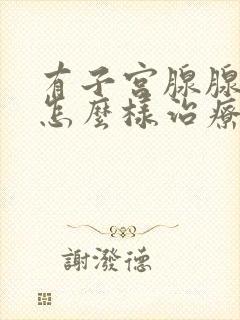 有子宮腺腺
怎麼樣治療
謝潑德